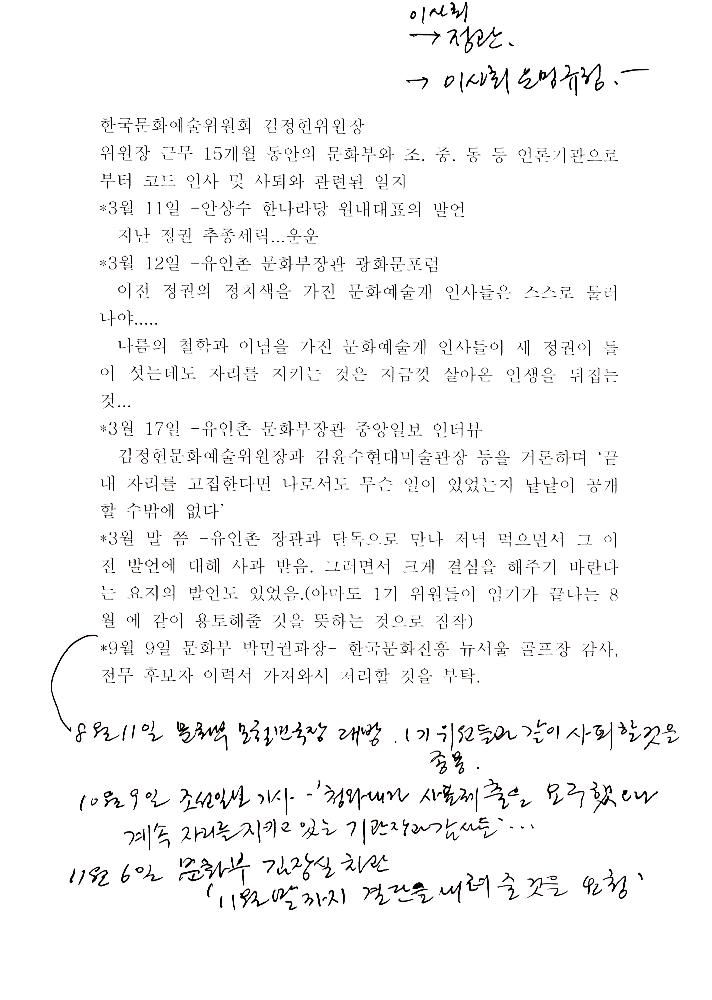 이사회
→ 정관.
→ 이사회 운영규정. ―
한국문화예술위원회 김정헌위원장
위원장 근무 15개월 동안의 문화부와 조. 중. 동 등 언론기관으로
부터 코드 인사 및 사퇴와 관련된 일지
*3월 11일 -안상수 한나라당 원내대표의 발언
지난 정권 추종세력...운운
*3월 12일 -유인촌 문화부장관 광화문포럼
이전 정권의 정치색을 가진 문화예술계 인사들은 스스로 물러
나야.....
나름의 철학과 이념을 가진 문화예술계 인사들이 새 정권이 들
어 섯는데도 자리를 지키는 것은 지금껏 살아온 인생을 뒤집는
것...
*3월 17일 -유인촌 문화부장관 중앙일보 인터뷰
김정헌문화예술위원장과 김윤수현대미술관장 등을 거론하며 '끝
내 자리를 고집한다면 나로서도 무슨 일이 있었는지 낱낱이 공개
할 수밖에 없다'
*3월 말 쯤 -유인촌 장관과 단독으로 만나 저녁 먹으면서 그 이
전 발언에 대해 사과 받음. 그러면서 크게 결심을 해주기 바란다
는 요지의 발언도 있었음.(아마도 1기 위원들이 임기가 끝나는 8
월 에 같이 용퇴해줄 것을 뜻하는 것으로 짐작)
*9월 9일 문화부 박민권과장- 한국문화진흥 뉴서울 골프장 감사,
전무 후보자 이력서 가져와서 처리할 것을 부탁.
8월 11일 모철민국장 래방. 1기 위원들과 같이 사퇴할것을
종용.
10월 9일 조선일보 기사 - '청와대가 사표제출을 요구했으나
계속 자리를 지키고 있는 기관장과 감사들' ...
11월 6일 문화부 김장실 차관
'11월말까지 결단을 내려 줄 것을 요청'